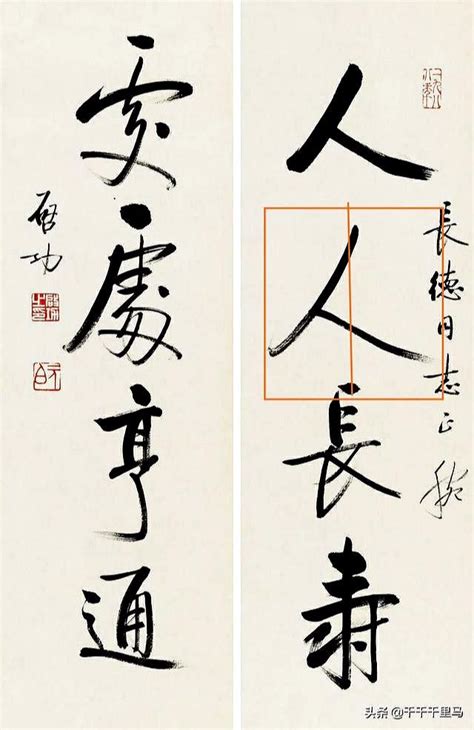 人人長寿
長德同志正
䖏處亨通
启功
头条 @千千千里马